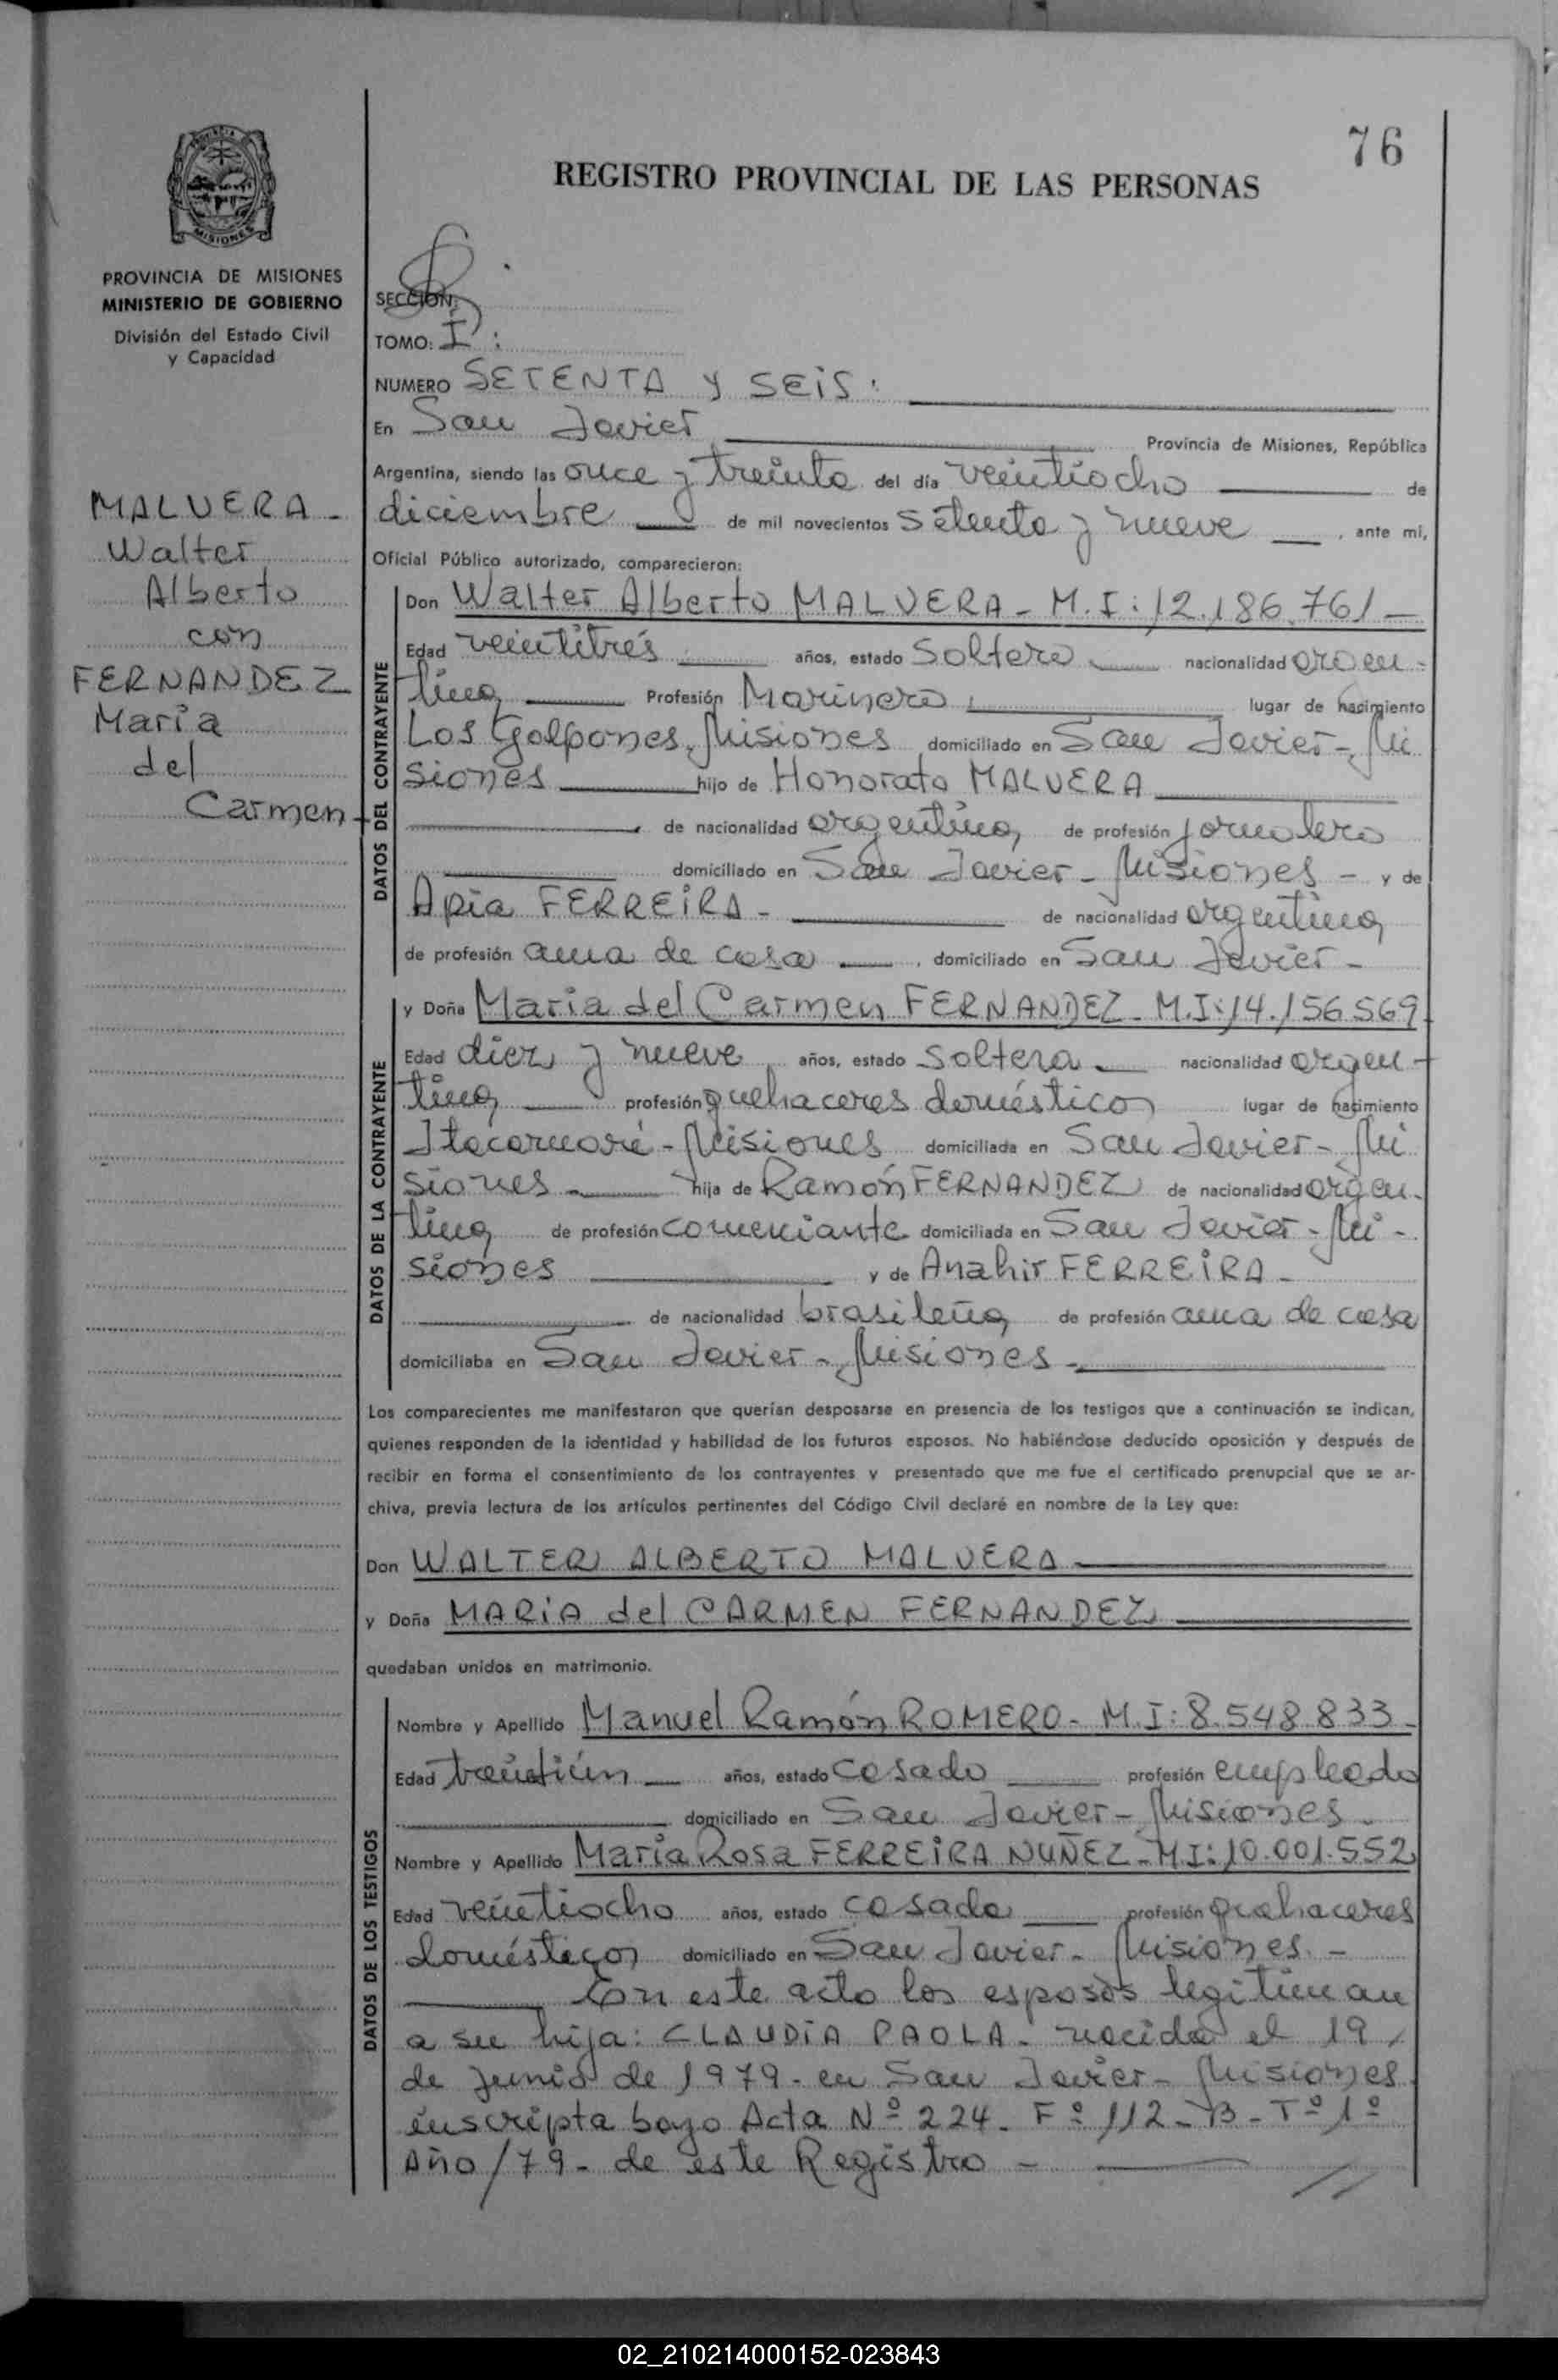 76
REGISTRO PROVINCIAL DE LAS PERSONAS
PROVINCIA
MISIONES
PROVINCIA DE MISIONES
MINISTERIO DE GOBIERNO
División del Estado Civil
y Capacidad
MALVERA -
Walter
Alberto
con
FERNANDEZ
Maria
del
Carmen
SECCION:
TOMO: I :
NUMERO SETENTA y SEIS :
En San Javier Provincia de Misiones, República
Argentina, siendo las once y treinta del día veintiocho de
diciembre de mil novecientos setenta y nueve , ante mí,
Oficial Público autorizado, comparecieron:
DATOS DEL CONTRAYENTE
Don Walter Alberto MALVERA - M.I: 12.186.761 -
Edad veintitrés años, estado Soltero nacionalidad argen-
tina, Profesión Marinero, lugar de nacimiento
Los Galpones, Misiones domiciliado en San Javier - Mi
siones hijo de Honorato MALVERA
de nacionalidad argentina, de profesión jornalero
domiciliado en San Javier - Misiones - y de
Apia FERREIRA - de nacionalidad argentina,
de profesión ama de casa , domiciliado en San Javier -
DATOS DE LA CONTRAYENTE
y Doña Maria del Carmen FERNANDEZ - M.I: 14.156.569
Edad diez y nueve años, estado soltera nacionalidad argen-
tina, profesión quehaceres domésticos lugar de nacimiento
Itacaruaré - Misiones domiciliada en San Javier - Mi
siones hija de Ramón FERNANDEZ de nacionalidad argen-
tina, de profesión comerciante domiciliada en San Javier - Mi -
siones y de Anahir FERREIRA -
de nacionalidad brasileña, de profesión ama de casa
domiciliaba en San Javier - Misiones -
Los comparecientes me manifestaron que querían desposarse en presencia de los testigos que a continuación se indican,
quienes responden de la identidad y habilidad de los futuros esposos. No habiéndose deducido oposición y después de
recibir en forma el consentimiento de los contrayentes y presentado que me fue el certificado prenupcial que se ar-
chiva, previa lectura de los artículos pertinentes del Código Civil declaré en nombre de la Ley que:
Don WALTER ALBERTO MALVERA
y Doña MARIA del CARMEN FERNANDEZ
quedaban unidos en matrimonio.
DATOS DE LOS TESTIGOS
Nombre y Apellido Manuel Ramón ROMERO - M.I: 8.548.833 -
Edad treintiún años, estado casado profesión empleado
domiciliado en San Javier - Misiones -
Nombre y Apellido María Rosa FERREIRA NUÑEZ - MI: 10.001.552
Edad veintiocho años, estado casada profesión quehaceres
domésticos domiciliado en San Javier - Misiones. -
En este acto los esposos legitiman
a su hija: CLAUDIA PAOLA - nacida el 19
de junio de 1979 - en San Javier - Misiones
inscripta bajo Acta Nº 224 - Fº 112 - B - Tº 1º
Año/79 - de este Registro -
02_210214000152-023843